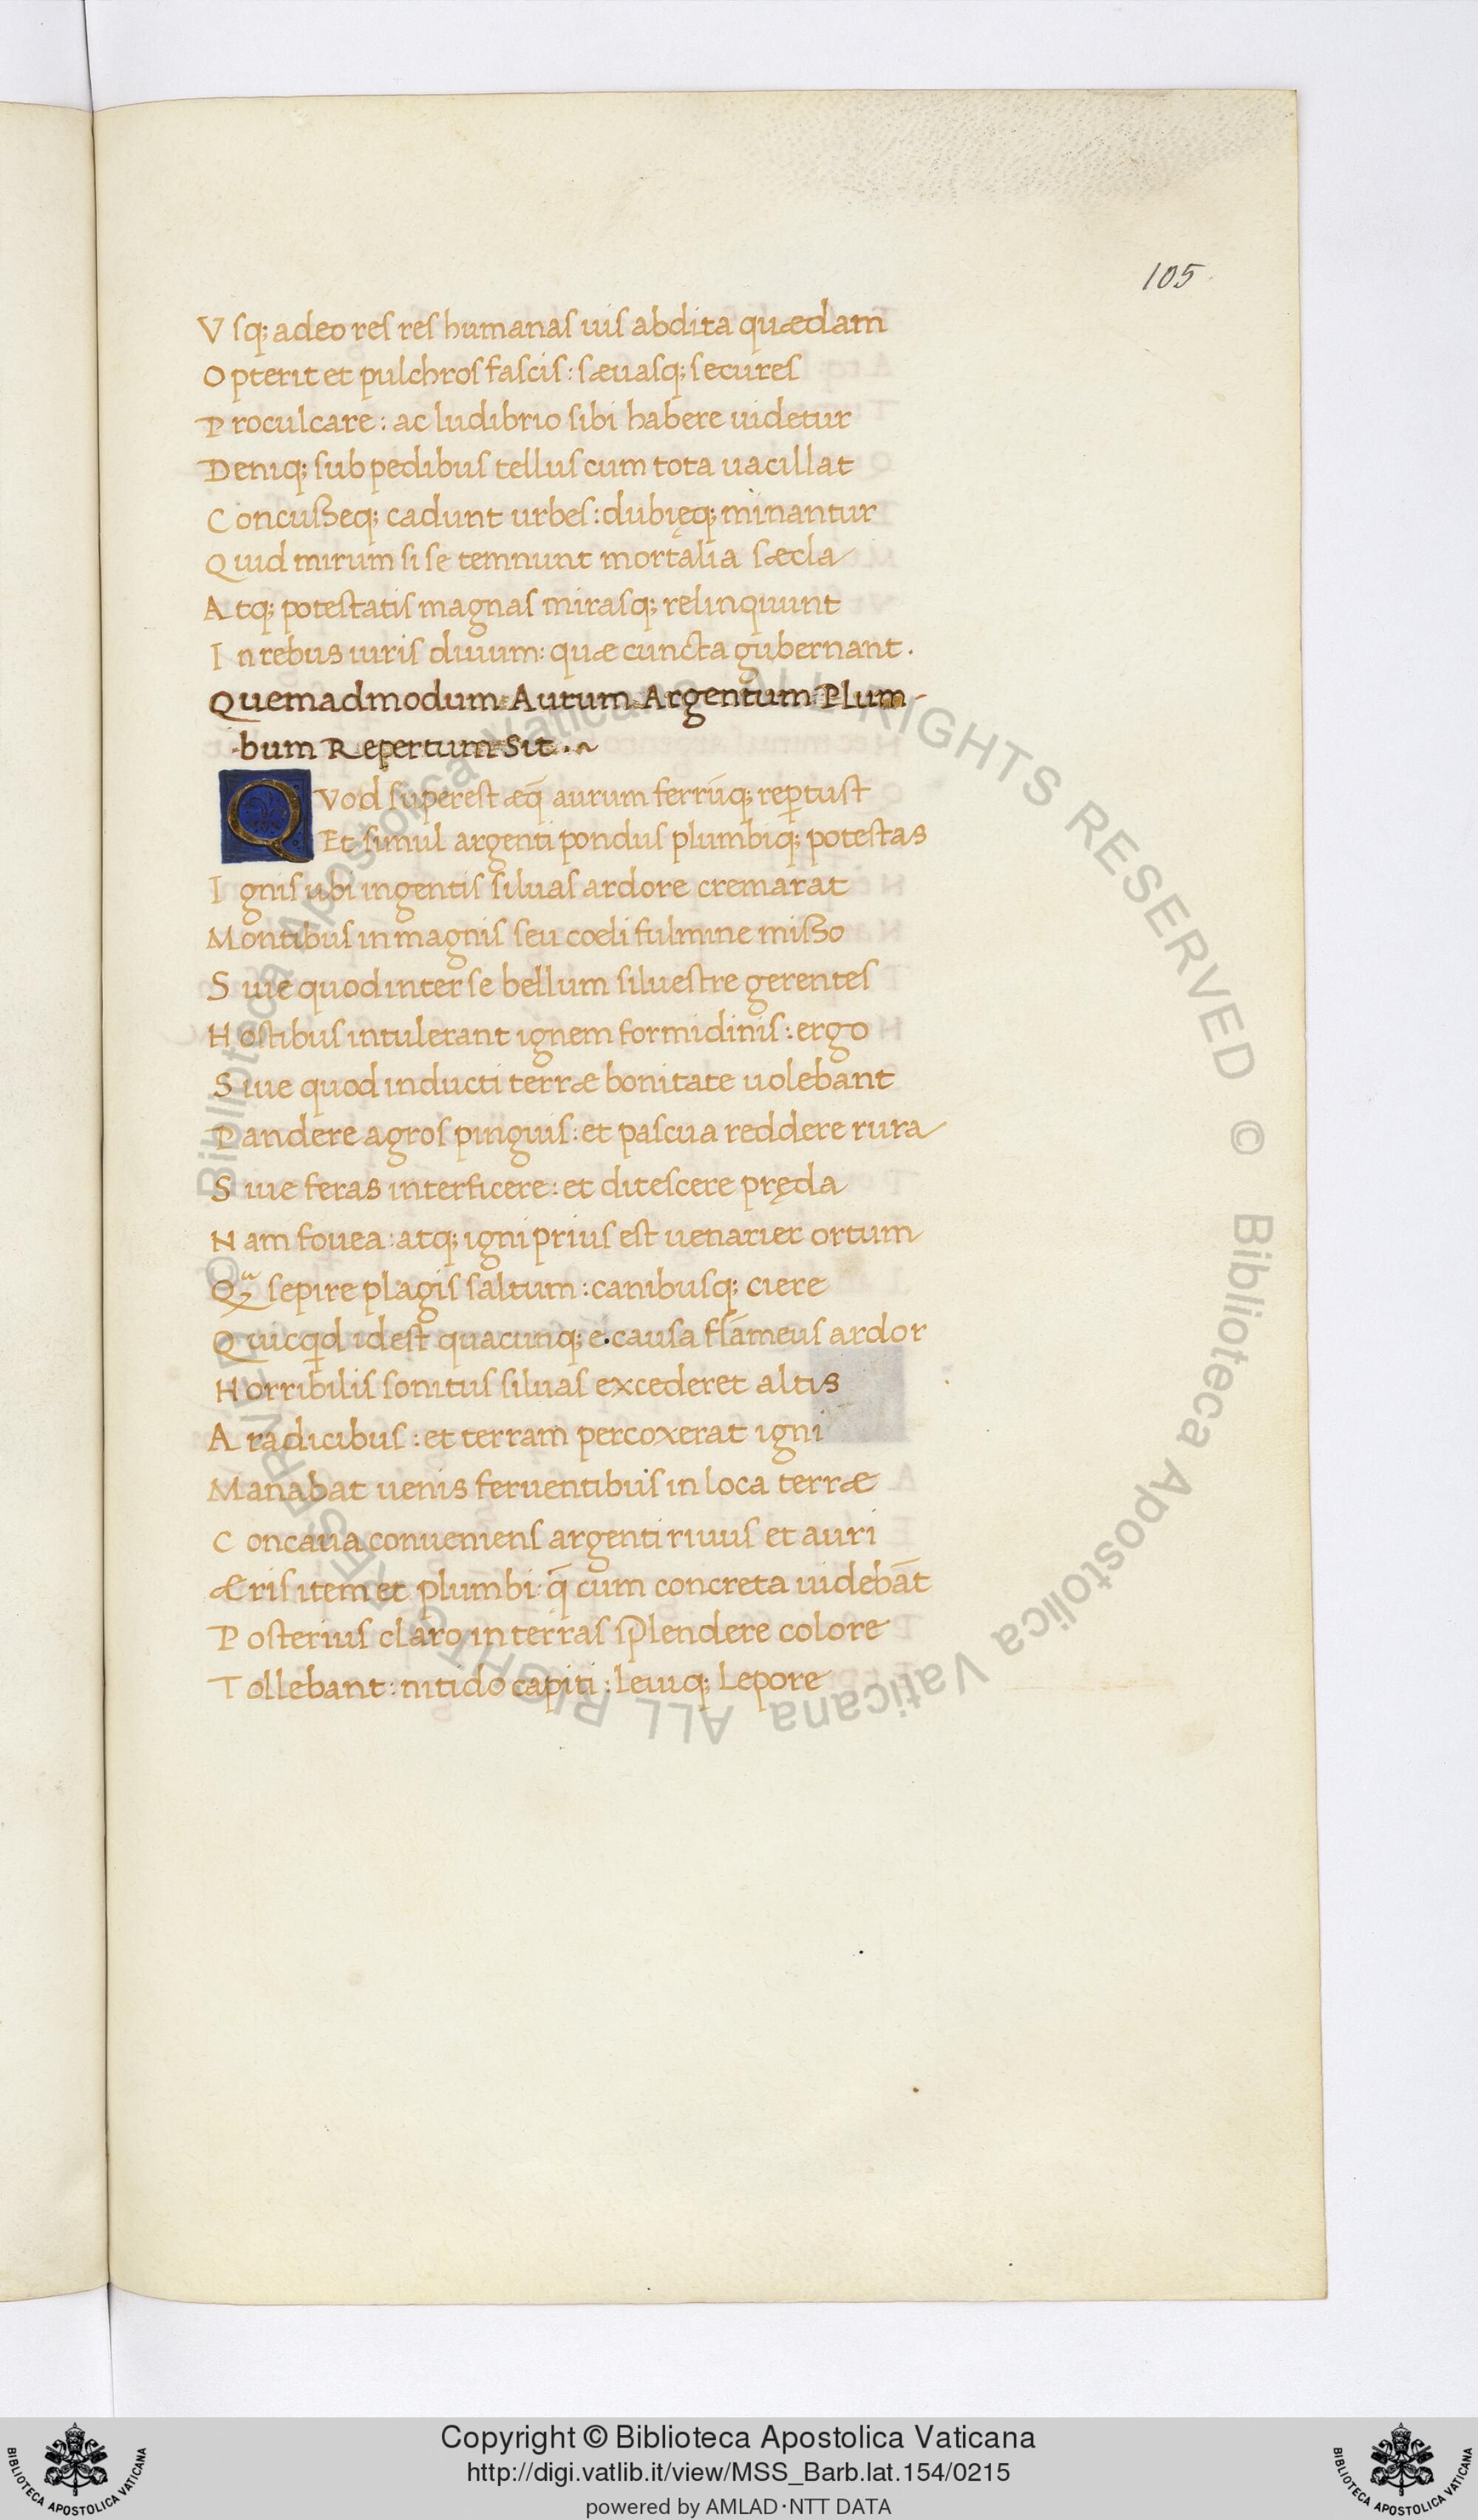 105
Vsq; adeo res res humanas uis abdita quædam
Opterit et pulchros fascis: sæuasq; secures
Proculcare: ac ludibrio sibi habere uidetur
Deniq; sub pedibus tellus cum tota uacillat
Concusseq; cadunt urbes: dubięq; minantur
Quid mirum si se temnunt mortalia sæcla
Atq; potestatis magnas mirasq; relinquunt
In rebus uiris diuum: quæ cuncta gubernant.
Quemadmodum Aurum Argentum Plum-
-bum Repertum Sit.~
QVod superest æq̄ aurum ferrūq; reꝑtust
Et simul argenti pondus plumbiq; potestas
Ignis ubi ingentis siluas ardore cremarat
Montibus in magnis seu coeli fulmine misso
Siue quod inter se bellum siluestre gerentes
Hostibus intulerant ignem formidinis: ergo
Siue quod inducti terræ bonitate uolebant
Pandere agros pinguis: et pascua reddere rura
Siue feras interficere: et ditescere pręda
Nam fouea: atq; igni prius est uenarier ortum
Qᷓ sepire plagis saltum: canibusq; ciere
Quicqd id est quacunq; e. causa flāmeus ardor
Horribilis sonitus siluas excederet altis
A radicibus: et terram percoxerat igni
Manabat uenis feruentibus in loca terræ
Concaua conueniens argenti riuus et auri
Æris item et plumbi: q̄ cum concreta uidebāt
Posterius claro in terras splendere colore
Tollebant: nitido capiti: leuiq; lepore
© Biblioteca Apostolica Vaticana ALL RIGHTS RESERVED © Biblioteca Apostolica Vaticana ALL RIGHTS RESERVED
Copyright © Biblioteca Apostolica Vaticana
http://digi.vatlib.it/view/MSS_Barb.lat.154/0215
powered by AMLAD·NTT DATA
BIBLIOTECA APOSTOLICA VATICANA
BIBLIOTECA APOSTOLICA VATICANA